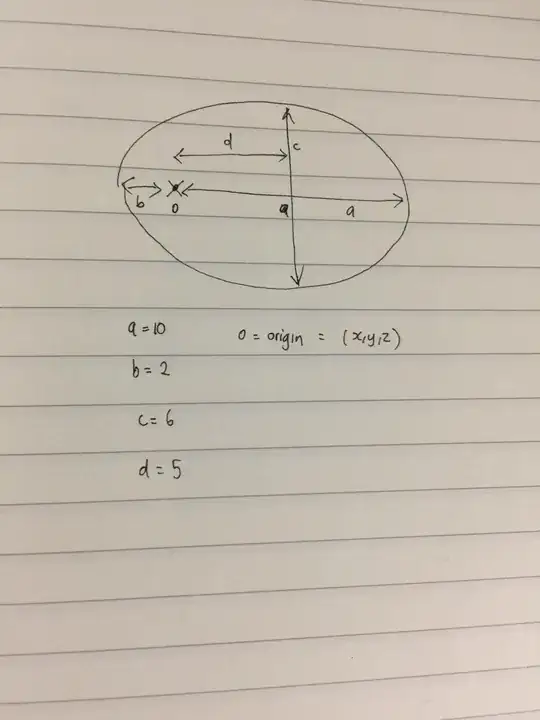 d
c
b
o
a
a
a = 10
o = origin = (x,y,z)
b = 2
c = 6
d = 5